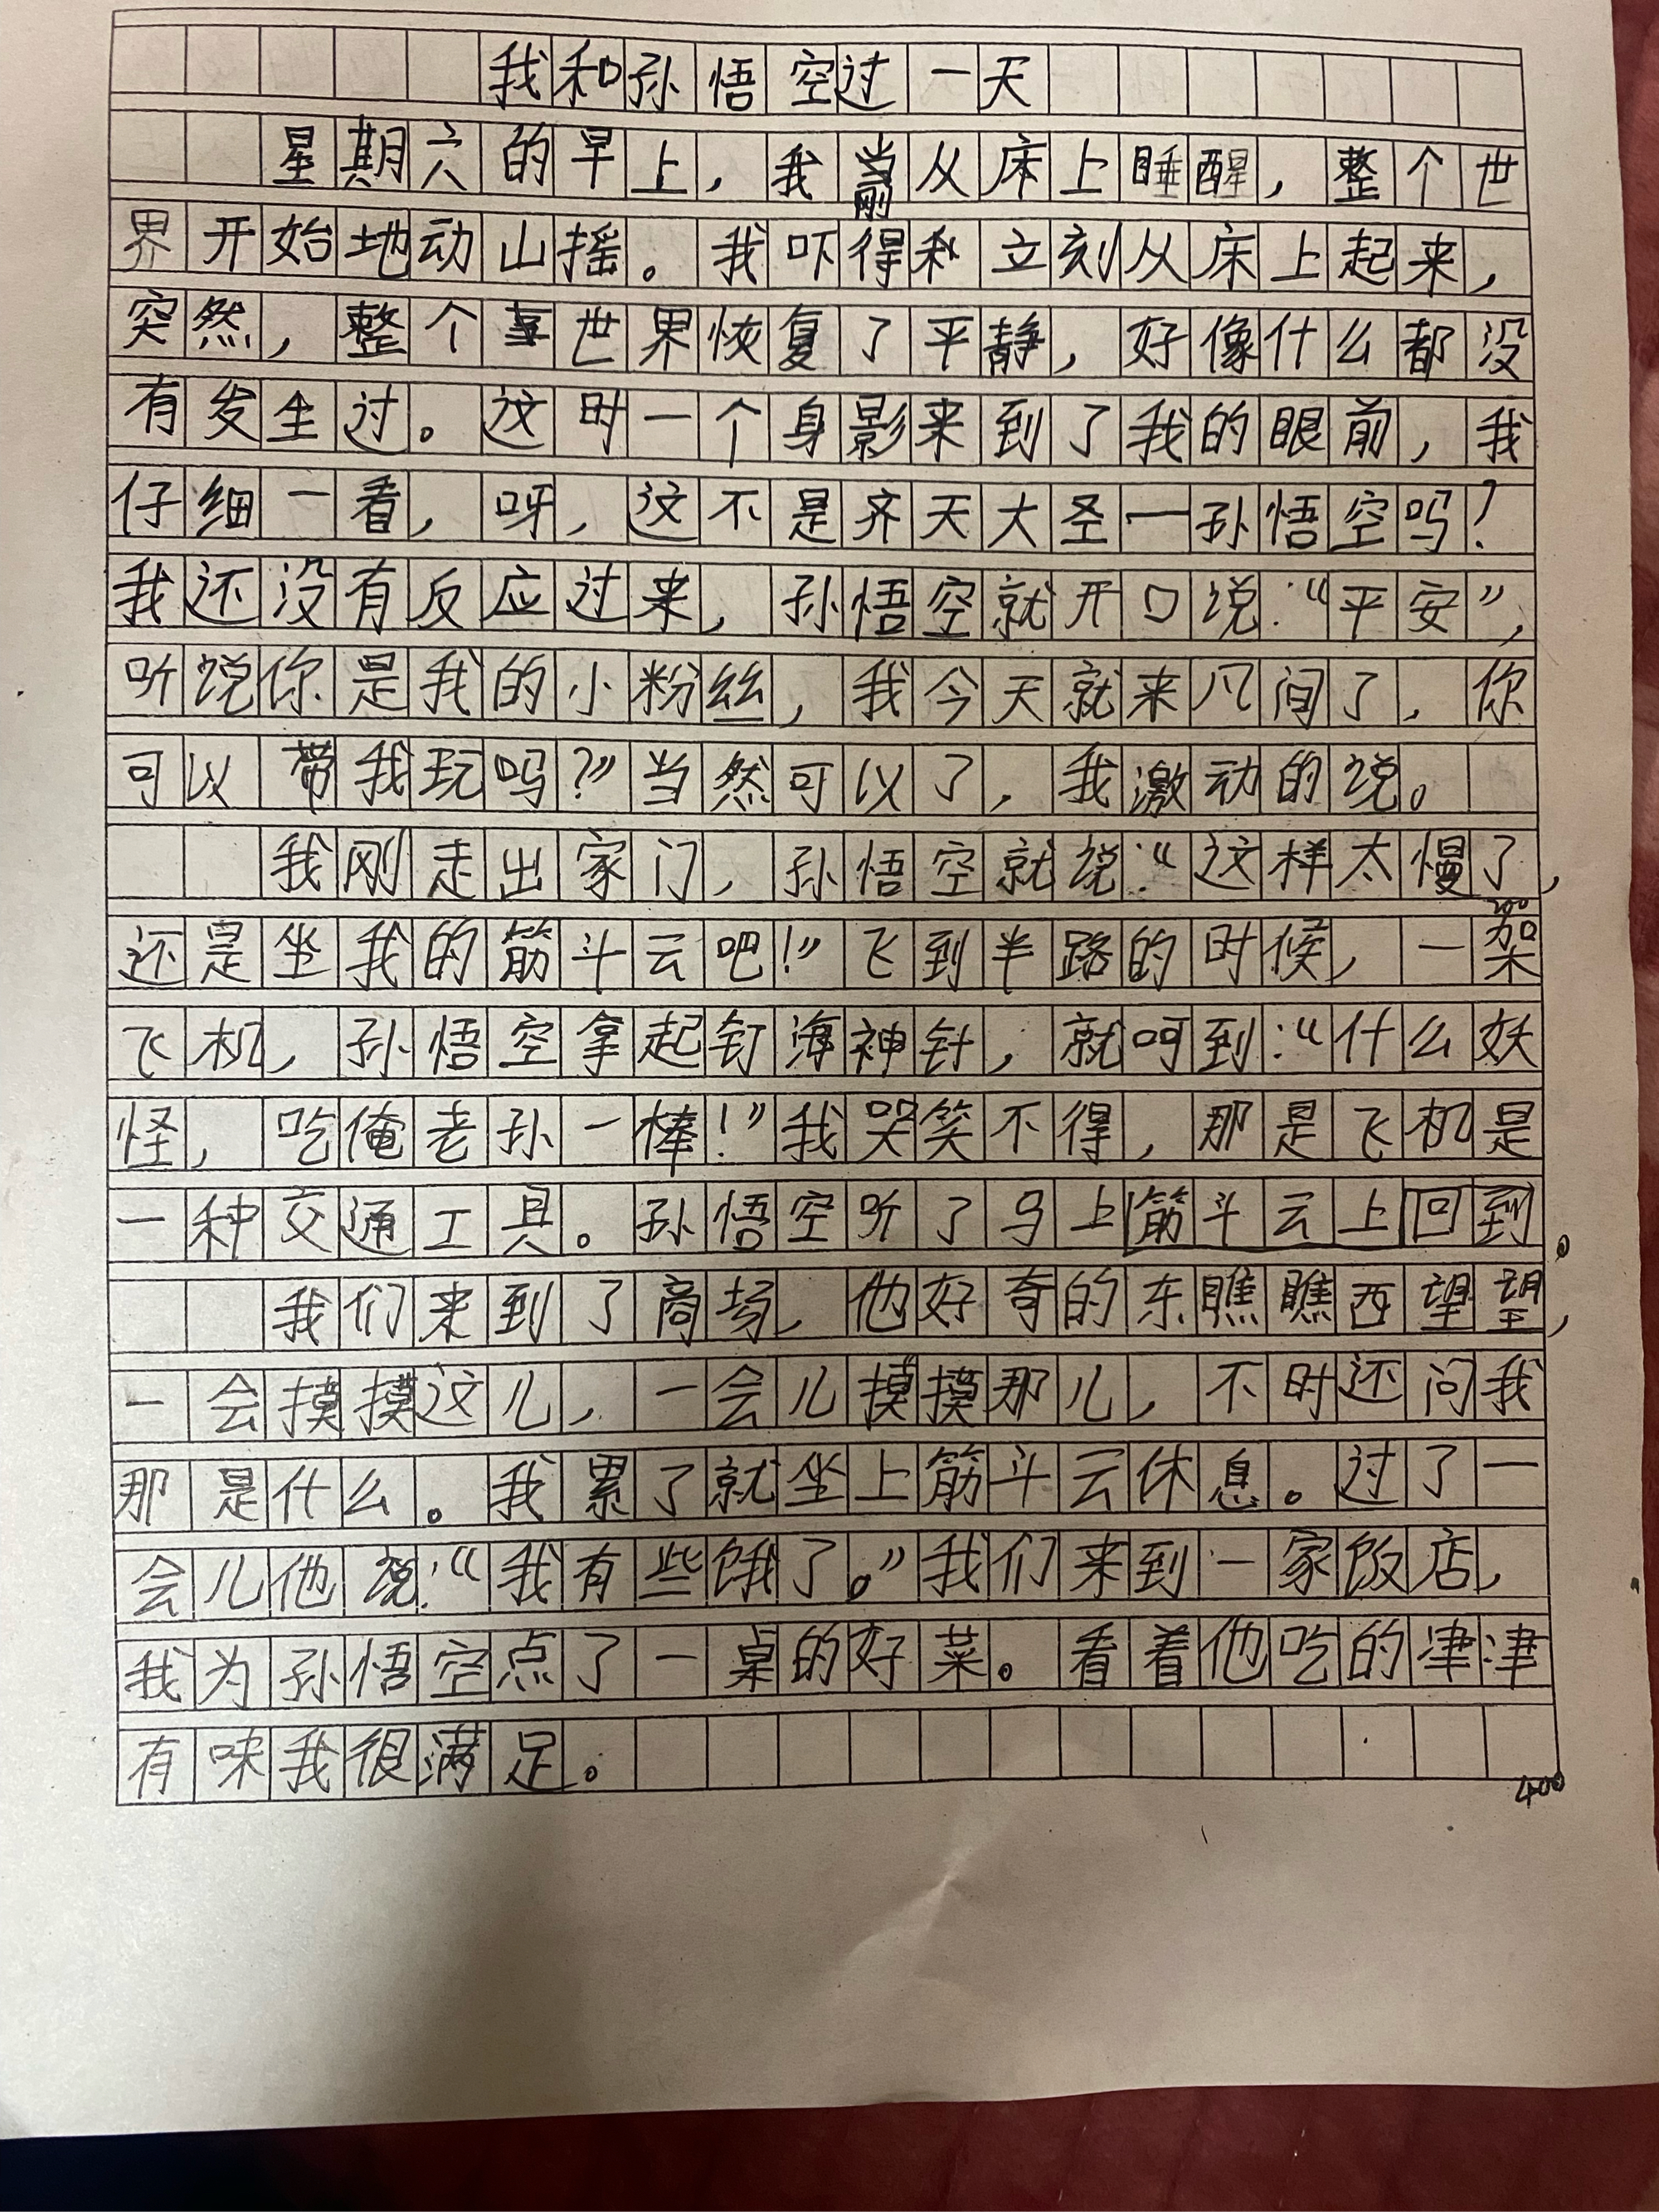 我和孙悟空过一天
星期六的早上，我刚从床上睡醒，整个世
界开始地动山摇。我吓得我立刻从床上起来，
突然，整个世界恢复了平静，好像什么都没
有发生过。这时一个身影来到了我的眼前，我
仔细一看，呀，这不是齐天大圣一孙悟空吗？
我还没有反应过来，孙悟空就开口说：“平安”，
听说你是我的小粉丝，我今天就来凡间了，你
可以带我玩吗？”当然可以了，我激动的说。
我刚走出家门，孙悟空就说：“这样太慢了，
还是坐我的筋斗云吧！”飞到半路的时候，一架
200
飞机，孙悟空拿起钉海神针，就呵到：“什么妖
怪，吃俺老孙一棒！”我哭笑不得，那是飞机是
一种交通工具。孙悟空听了马上筋斗云上回到。
我们来到了商场，他好奇的东瞧瞧西望望，
一会摸摸这儿，一会儿摸摸那儿，不时还问我
那是什么。我累了就坐上筋斗云休息。过了一
会儿他说：“我有些饿了。”我们来到一家饭店，
我为孙悟空点了一桌的好菜。看着他吃的津津
有味我很满足。
400